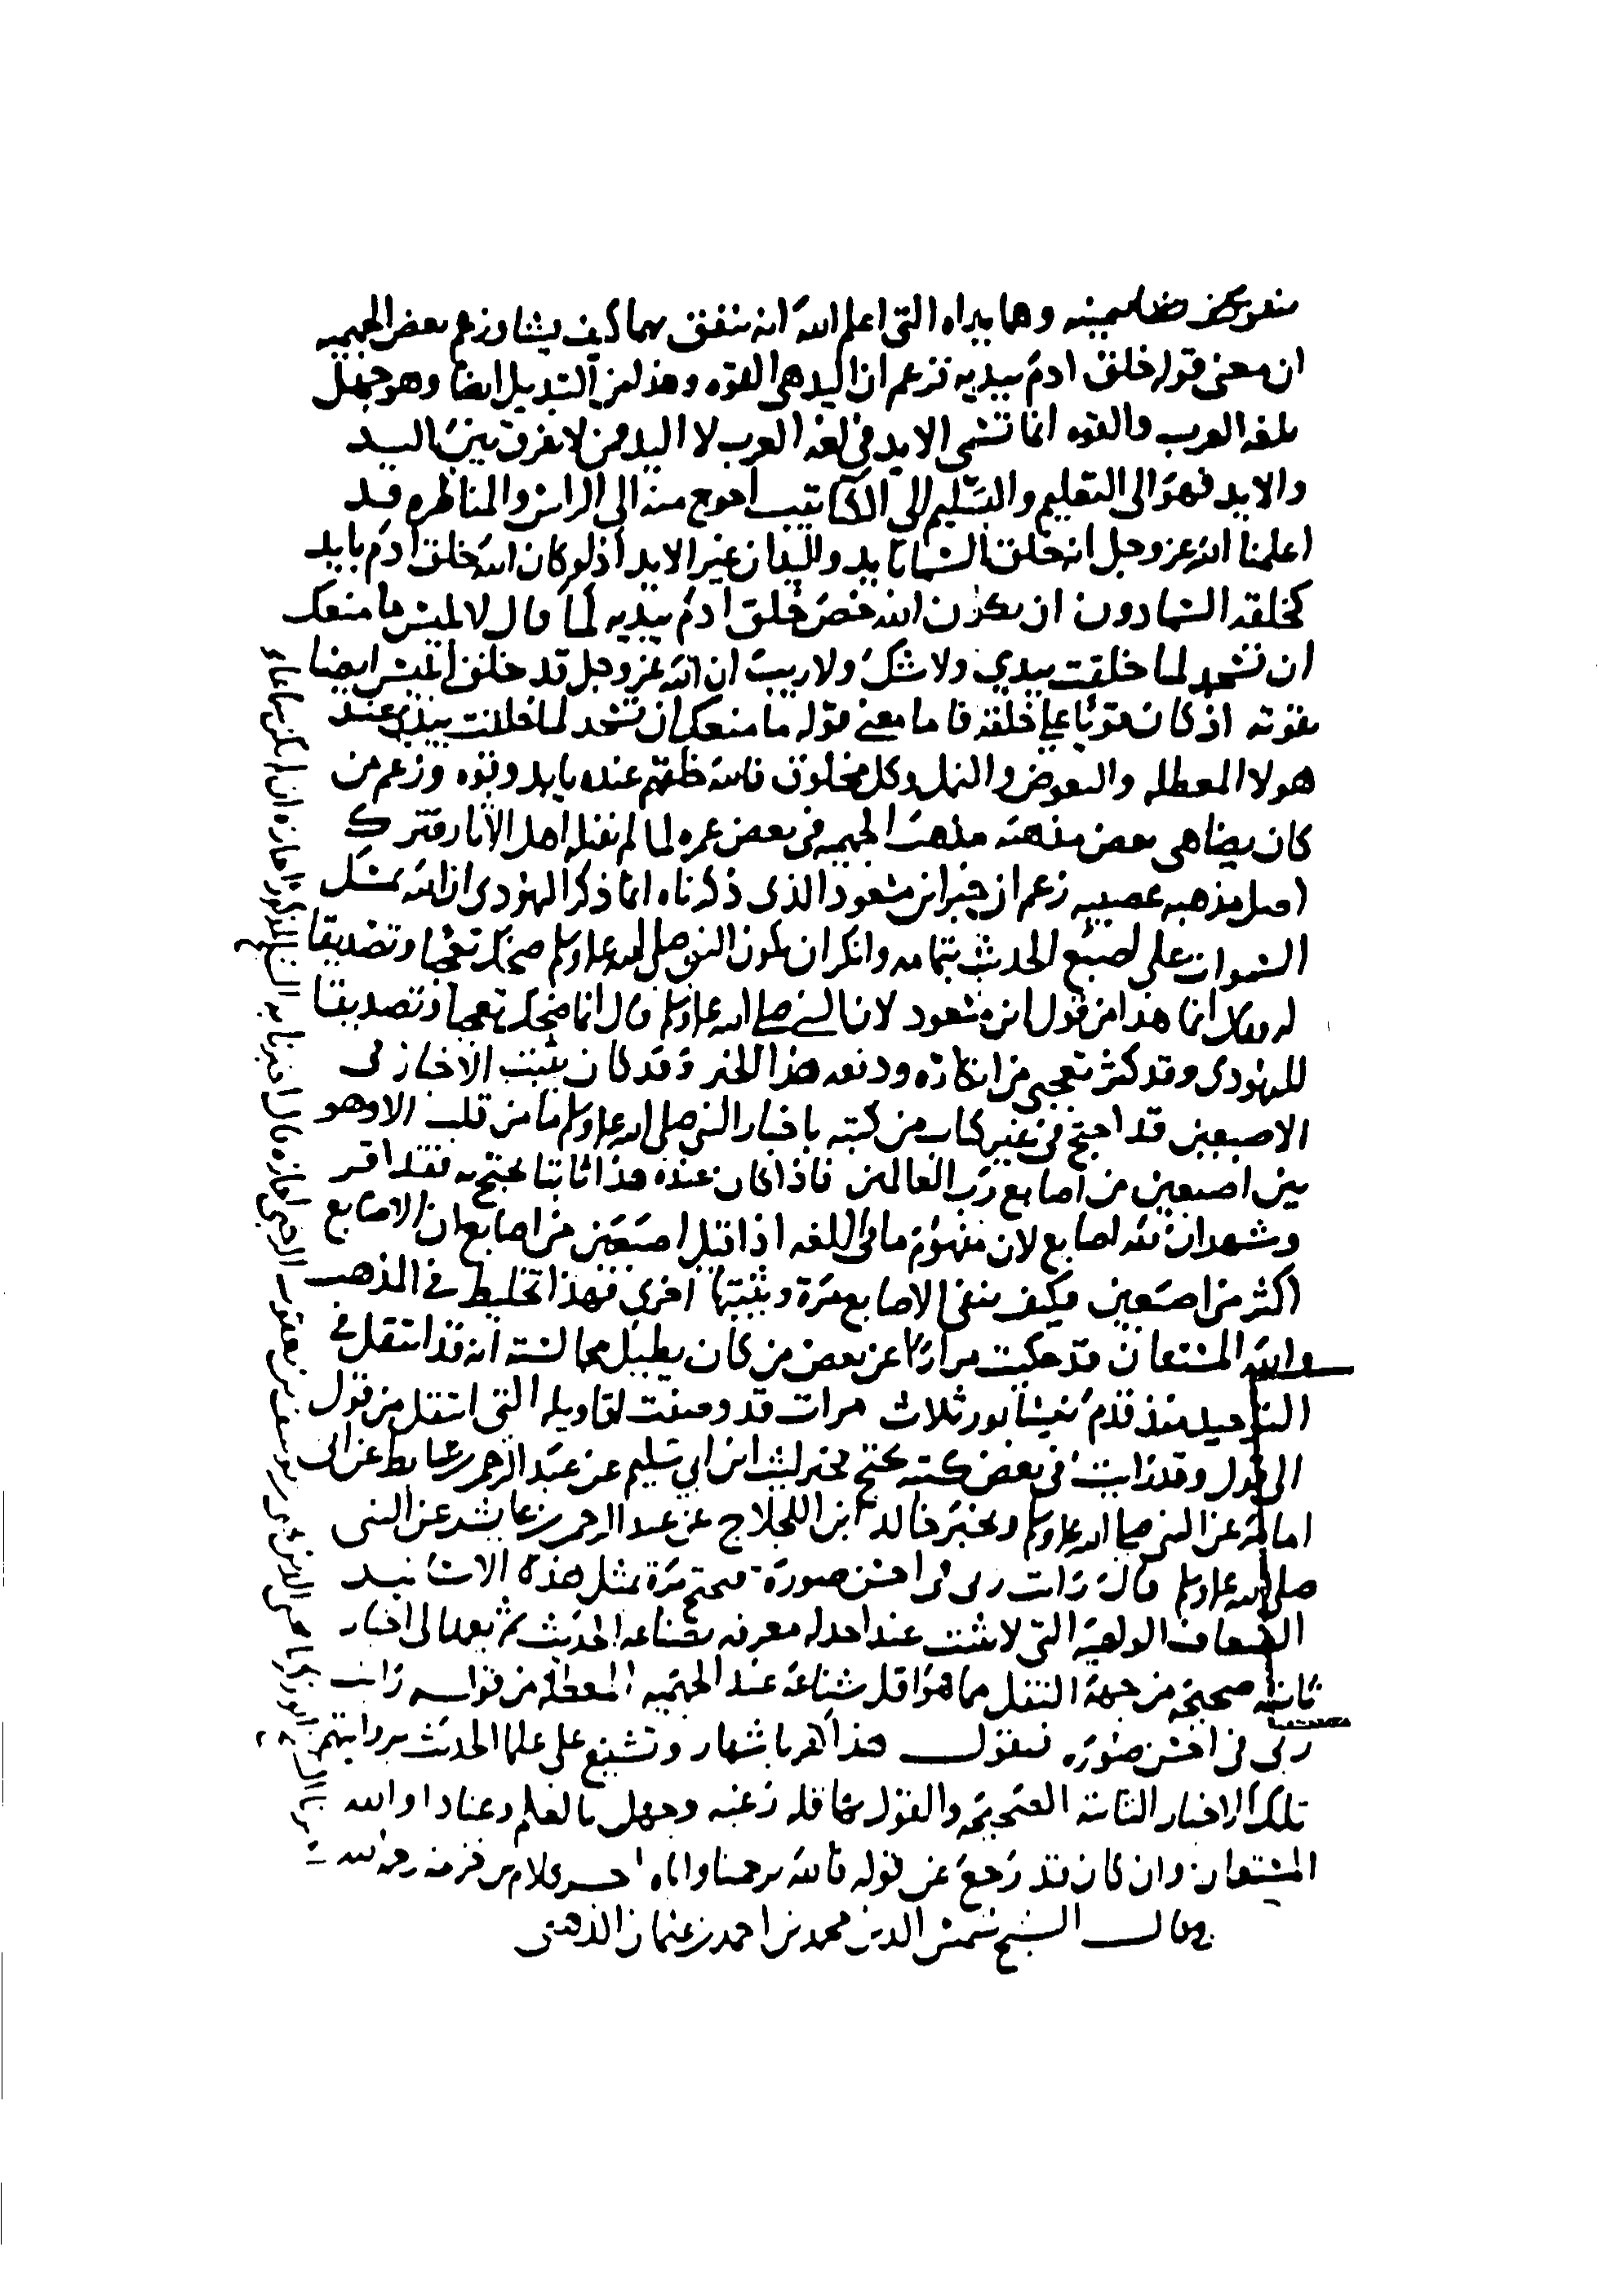 وهما يداه التي اعلم الله انه ينفق بهما كيف يشا وزعم بعض الجهميه
ان معنى قوله خلق ادم بيديه تزعم ان اليد هي القوه وهذا من التبديل ايضا وهو جهل
بلغه العرب والقوه انما تسمى الايد في لغه العرب لا اليد فمن لا يفرق بين اليد
والايد فهو الى التعليم والتسليم الى الكتاتيب احوج منه الى الراس والمناظره قد
اعلمنا الله عز وجل انه خلق السما بايد واليدان غير الايد اذ لو كان الله خلق ادم بايد
كخلقه السما دون ان يكون الله خص خلق ادم بيديه لما قال لابليس ما منعك
ان تسجد لما خلقت بيدي ولا شك ولا ريب ان الله عز وجل قد خلق ابليس ايضا
بقوته اذ كان قويا على خلقه فما معنى قوله ما منعك ان تسجد لما خلقت بيدي عند
هولا المعطله والبعوض والنمل وكل مخلوق فالله خلقهم عنده بايد وقوه وزعم من
كان يضاهي بعض مذهبه مذهب الجهميه في بعض عمره لما لم يقبله اهل الاثار فترك
اصل مذهبه عصبيه زعم ان خبر ابن مسعود الذي ذكرناه انما ذكر اليهودي ان الله يمسك
السموات على اصبع الحديث بتمامه وانكر ان يكون النبي صلى الله عليه وسلم ضحك تعجبا وتصديقا
له وقال انما هذا من قول ابن مسعود لان النبي صلى الله عليه وسلم قال انما ضحك تعجبا وتصديقا
لليهودي وقد كثر تعجبي من انكاره ودفعه هذا الخبر وقد كان يثبت الاخبار في
الاصبعين قد احتج في غير كتاب من كتبه باخبار النبي صلى الله عليه وسلم ما من قلب الا وهو
بين اصبعين من اصابع رب العالمين فاذا كان عنده هذا ثابتا يحتج به فقد اقر
وشهد ان لله اصابع لان مفهوما في اللغه اذا قيل اصبعين من اصابع ان الاصابع
اكثر من اصبعين فكيف ينفي الاصابع مرة ويثبتها اخرى فهذا تخليط في المذهب
والله المستعان وقد حكيت مرارا عن بعض من كان يطيل مجالسته انه قد انتقل في
التوحيد منذ قدم نيسابور ثلاث مرات قد وصفت اقاويله التي انتقل من قول
الى قول وقد رايت في بعض كتبه يحتج بخبر ليث ابن ابي سليم عن عبد الرحمن بن سابط عن ابي
امامة عن النبي صلى الله عليه وسلم وبخبر خالد ابن اللجلاج عن عبد الرحمن بن عايش عن النبي
صلى الله عليه وسلم قال رايت ربي في احسن صورة فيحتج مرة بمثل هذه الاسانيد
الضعاف الواهية التي لا تثبت عند احد له معرفه بصناعه الحديث ثم يعمد الى اخبار
ثابته صحيحة من جهة النقل مما هو اقل شناعة عند الجهميه المعطلة من قوله رايت
ربي في احسن صوره فيقول هذا كفر باشهار وتشنيع على علما الحديث بروايتهم
تلك الاخبار الثابتة الصحيحة والقول بها قله رغبه وجهل بالعلم وعنادا والله
المستعان وان كان قد رجع عن قوله فالله يرحمنا واياه اخر كلام بن خزيمه رحمه الله
وقال الشيخ شمس الدين محمد بن احمد بن عثمان الذهبي